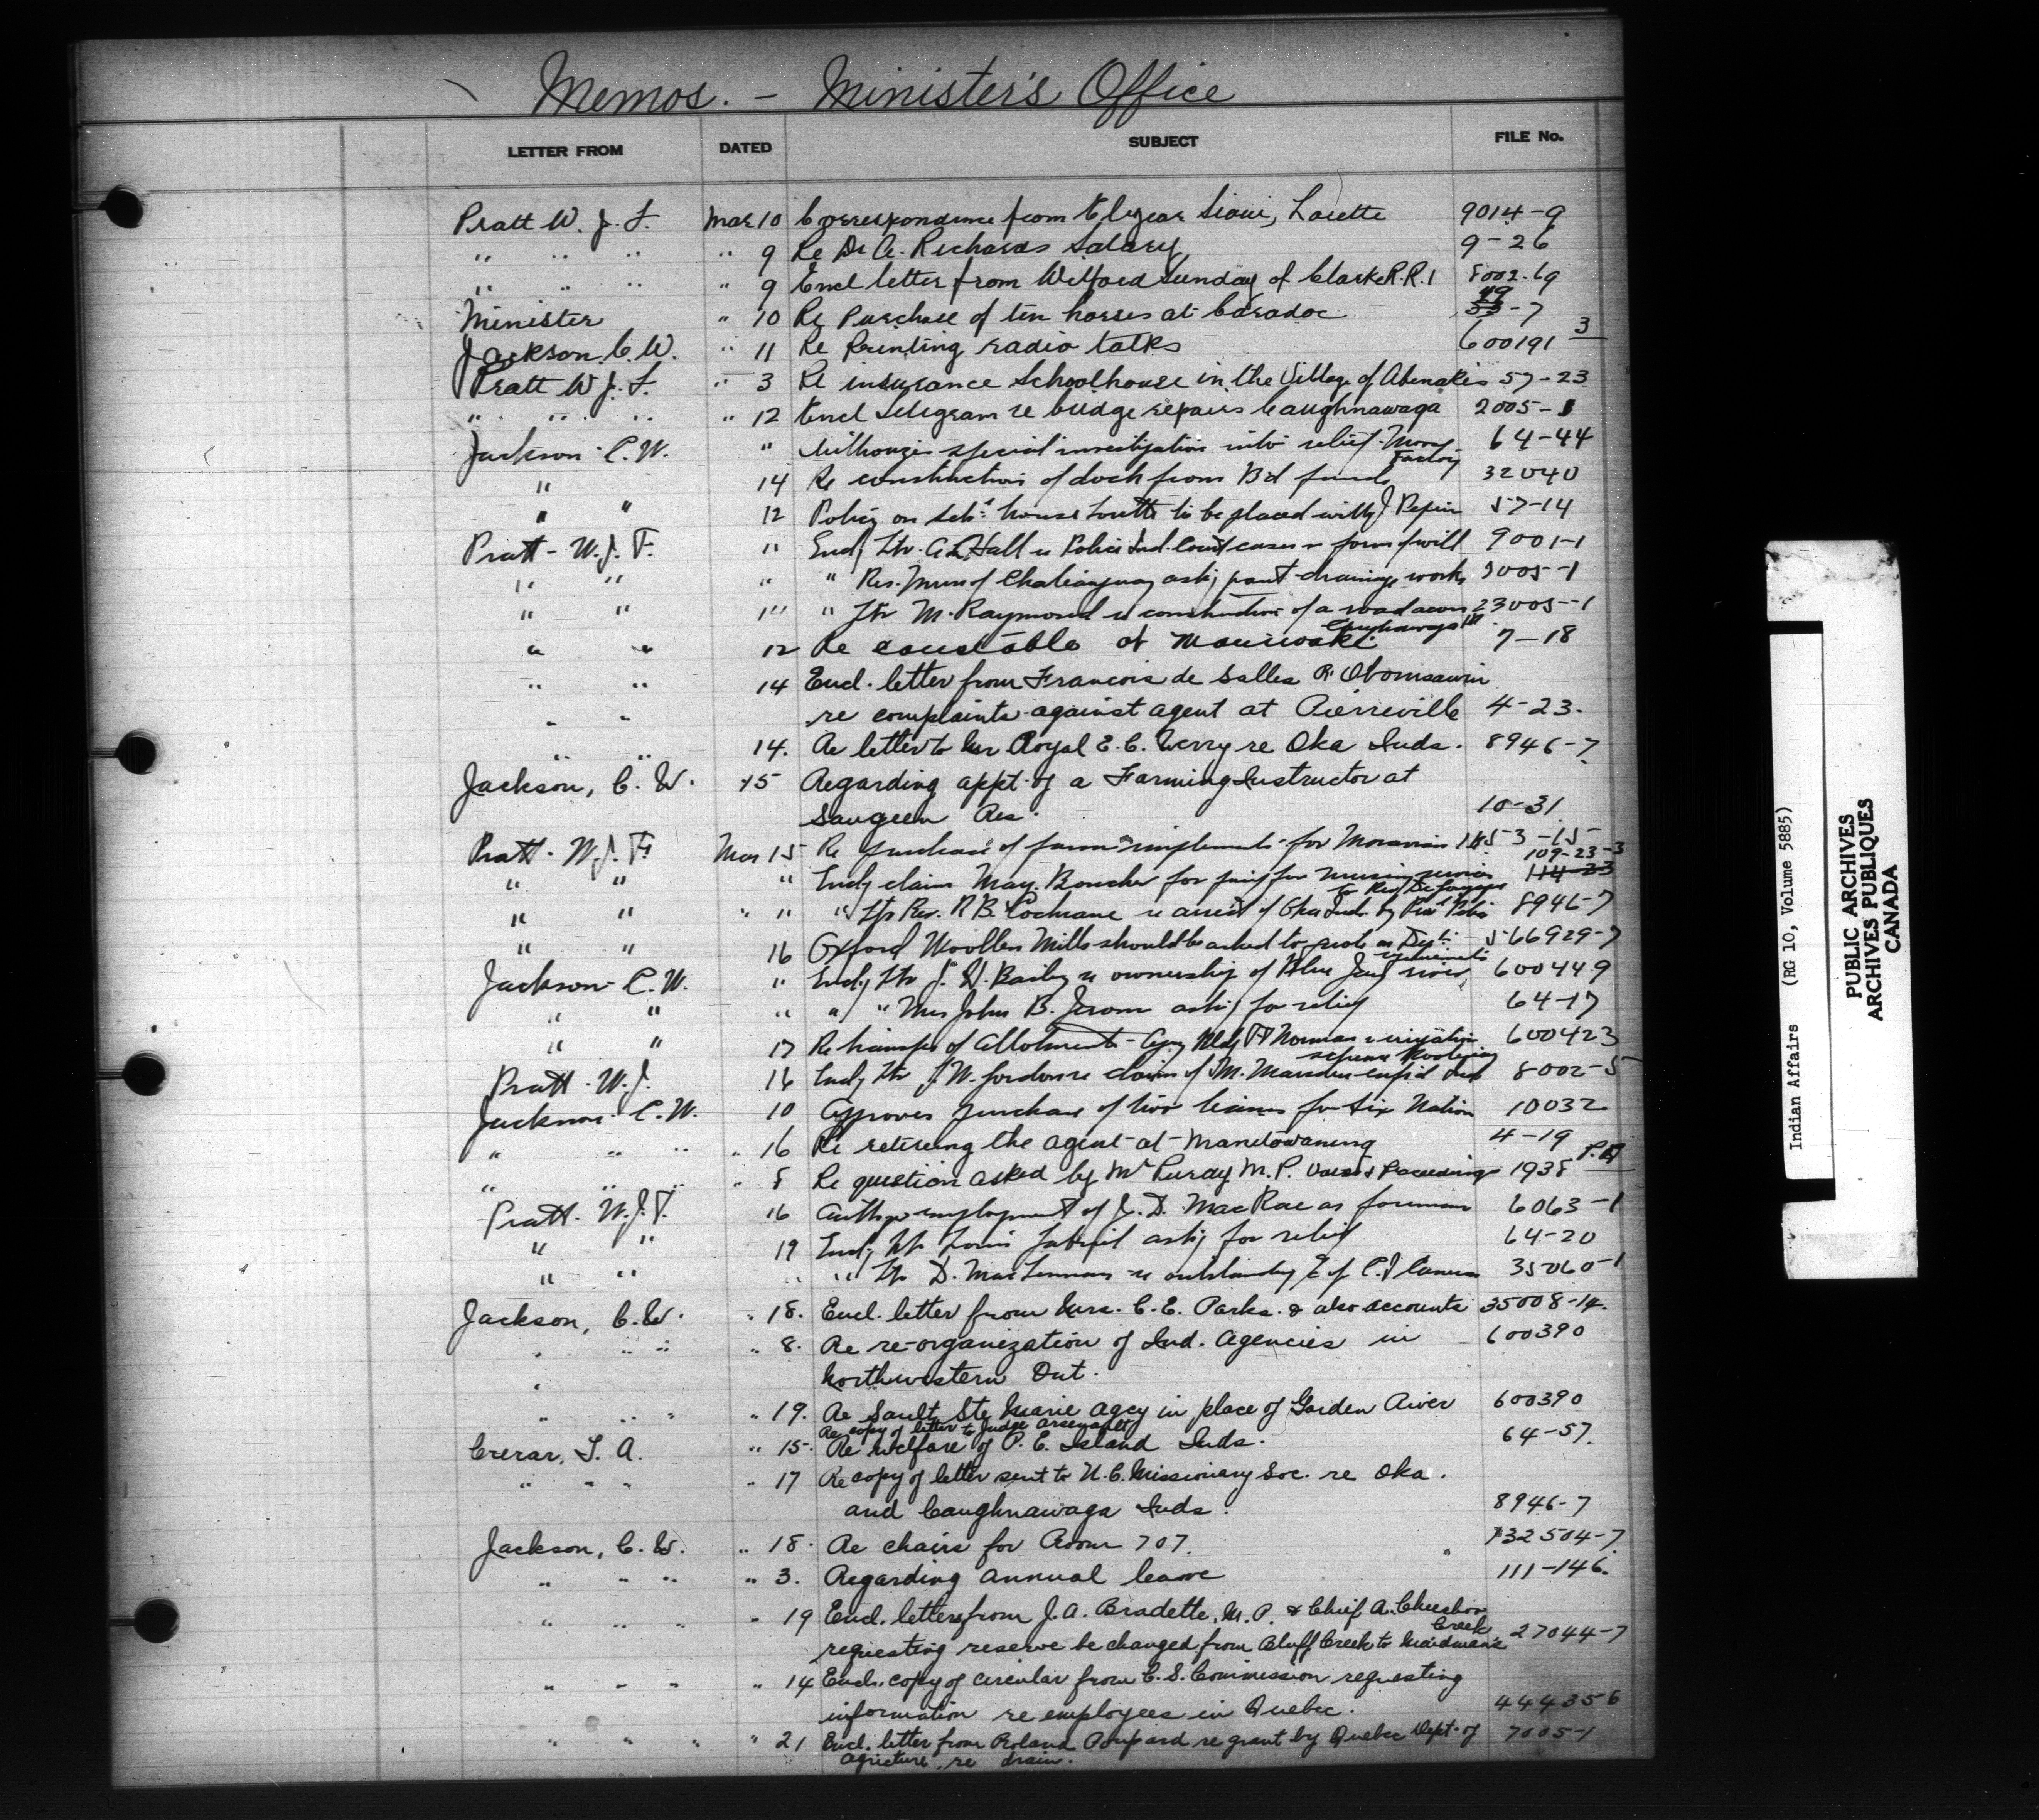 Memos. - Minister's Office
LETTER FROM DATED SUBJECT FILE No.
Pratt W. J. F. Mar 10 Correspondence from Elyear Sioui, Lorette 9014-9
" " " " 9 Re Dr A. Richards Salary 9-26
" " " " 9 Encl letter from Wilford Sunday of Clarke R.R.1 8002-69
Minister " 10 Re Purchase of ten horses at Caradoc 53-7 49
Jackson C. W. " 11 Re Printing radio talks 600191 3
Pratt W. J. F. " 3 Re insurance Schoolhouse in the Village of Abenakis 57-23
" " " " 12 Encl telegram re bridge repairs Caughnawaga 2005-1
Jackson C. W. " Authorizes special investigation into relief Moose Factory 64-44
" 14 Re construction of dock from Bd funds 32040
" " 12 Policy on Sch. house to be placed with J Pepin 57-14
Pratt - W. J. F. " Encl Ltr. Hall re Police Ind. Court cases form of will 9001-1
" " " " Res. Mun of Chateauguay ask'g grant drainage works 7005-1
" " " " Ltr M. Raymond re construction of a road across Caughnawaga IR 23005-1
" " 12 Re constable at Maniwaki 7-18
" " 14 Encl. letter from Francois de Salles R. Obomsawin
" " re complaints against agent at Pierreville 4-23.
" " 14. Re letter to Mr Royal E. C. Werry re Oka Inds. 8946-7
Jackson, C. W. 15 Regarding appt. of a Farming Instructor at
Saugeen Res. 10-31
Pratt - W. J. F. Mar 15 Re purchase of farm implements for Moravian IR 53-15
" " " Encl'g claim May. Boucher for pay't for nursing services 114-33 109-23-3
" " " " " Ltr Rev. R B. Cochrane re arrest of Oka Inds by 8946-7
" " 16 Oxford Woollen Mills should be asked to quote on Dept. requirements 566929-7
Jackson - C. W. " Encl'g Ltr J. W. Bailey re ownership of Blue Jay 600449
" " " " " Mrs John B. Jerome ask'g for relief 64-17
" " 17 Re transfer of Allotment - Agcy Bldg Ft Norman & irrigation scheme Kootenay 600423
Pratt - W. J. 16 Encl'g Ltr J. W. Gordon re claim of M. Marsden 8002-5
Jackson - C. W. 10 Approves purchase of two teams for Six Nation 10032
" " " " 16 Re retireing the agent at Manitowaning 4-19
" " " " 8 Re question asked by Mr Purdy M.P. Votes & Proceedings 1938 P.
Pratt - W. J. F. 16 Auth'g employment of J. D. MacRae as foreman 6063-1
" " 19 Encl'g Ltr Louis Gabriel ask'g for relief 64-20
" " " " Ltr D. MacLennan re outstanding 35060-1
Jackson, C. W. " 18. Encl. letter from Mrs. C. E. Parks. & also accounts 35008-14.
" " " " 8. Re re-organization of Ind. Agencies in 600390
" Northwestern Ont.
" " " " 19. Re Sault Ste Marie Agcy in place of Garden River 600390
Re copy of letter to Judge Arsenault
Crerar, T. A. " 15. Re welfare of P. E. Island Inds. 64-57.
" " " " 17 Re copy of letter sent to U. C. Missionary Soc. re Oka.
and Caughnawaga Inds. 8946-7
Jackson, C. W. " 18. Re chairs for Room 707. 132504-7
" " " " 3. Regarding annual leave 111-146.
" " " " 19 Encl. letters from J. A. Bradette, M. P. & Chief A. Cheechoo
requesting reserve be changed from Bluff Creek to Maidman's Creek 27044-7
" " " " 14 Encl. copy of circular from C. S. Commission requesting
information re employees in Quebec. 444356
" " " " 21 Encl. letter from Roland Poupard re grant by Quebec Dept. of 7005-1
Agriculture, re drain.
Indian Affairs (RG 10, Volume 5885)
PUBLIC ARCHIVES
ARCHIVES PUBLIQUES
CANADA